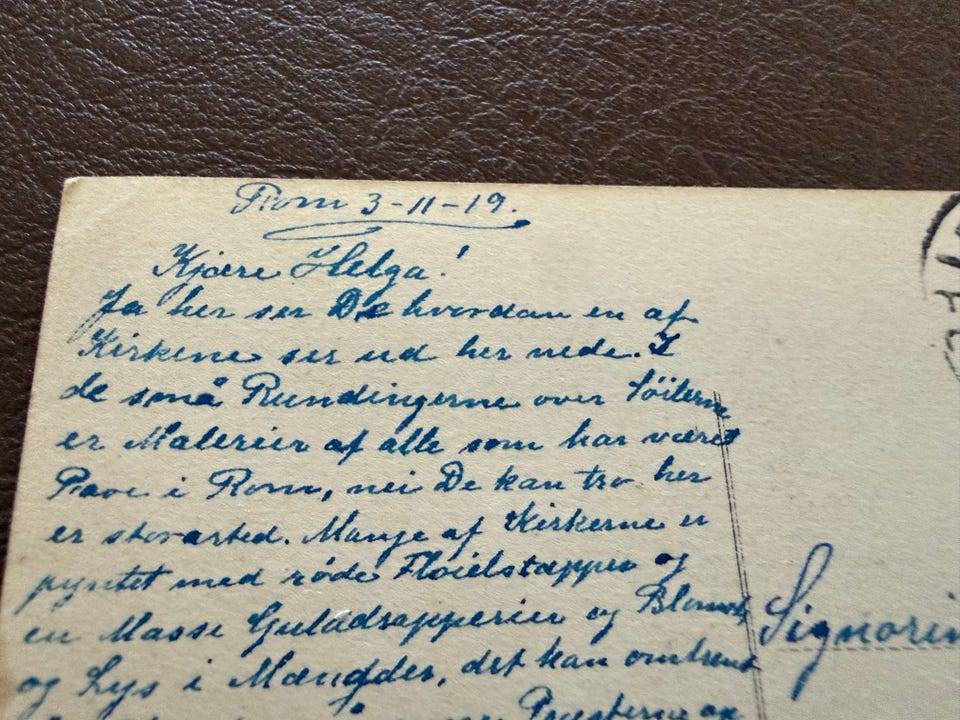 Rom 3-11-19.
Kjære Helga!
Ja her ser De hvordan en af
Kirkene ser ud her nede. I
de små Rundingerne over Söilerne
er Malerier af alle som har været
Pave i Rom, nei De kan tro her
er storarted. Mange af Kirkerne er
pyntet med röde Flöielstæpper og
en Masse Gulddrapperier og Blomst
og Lys i Mængder, det kan omtrent
Præsterne og
Signorin